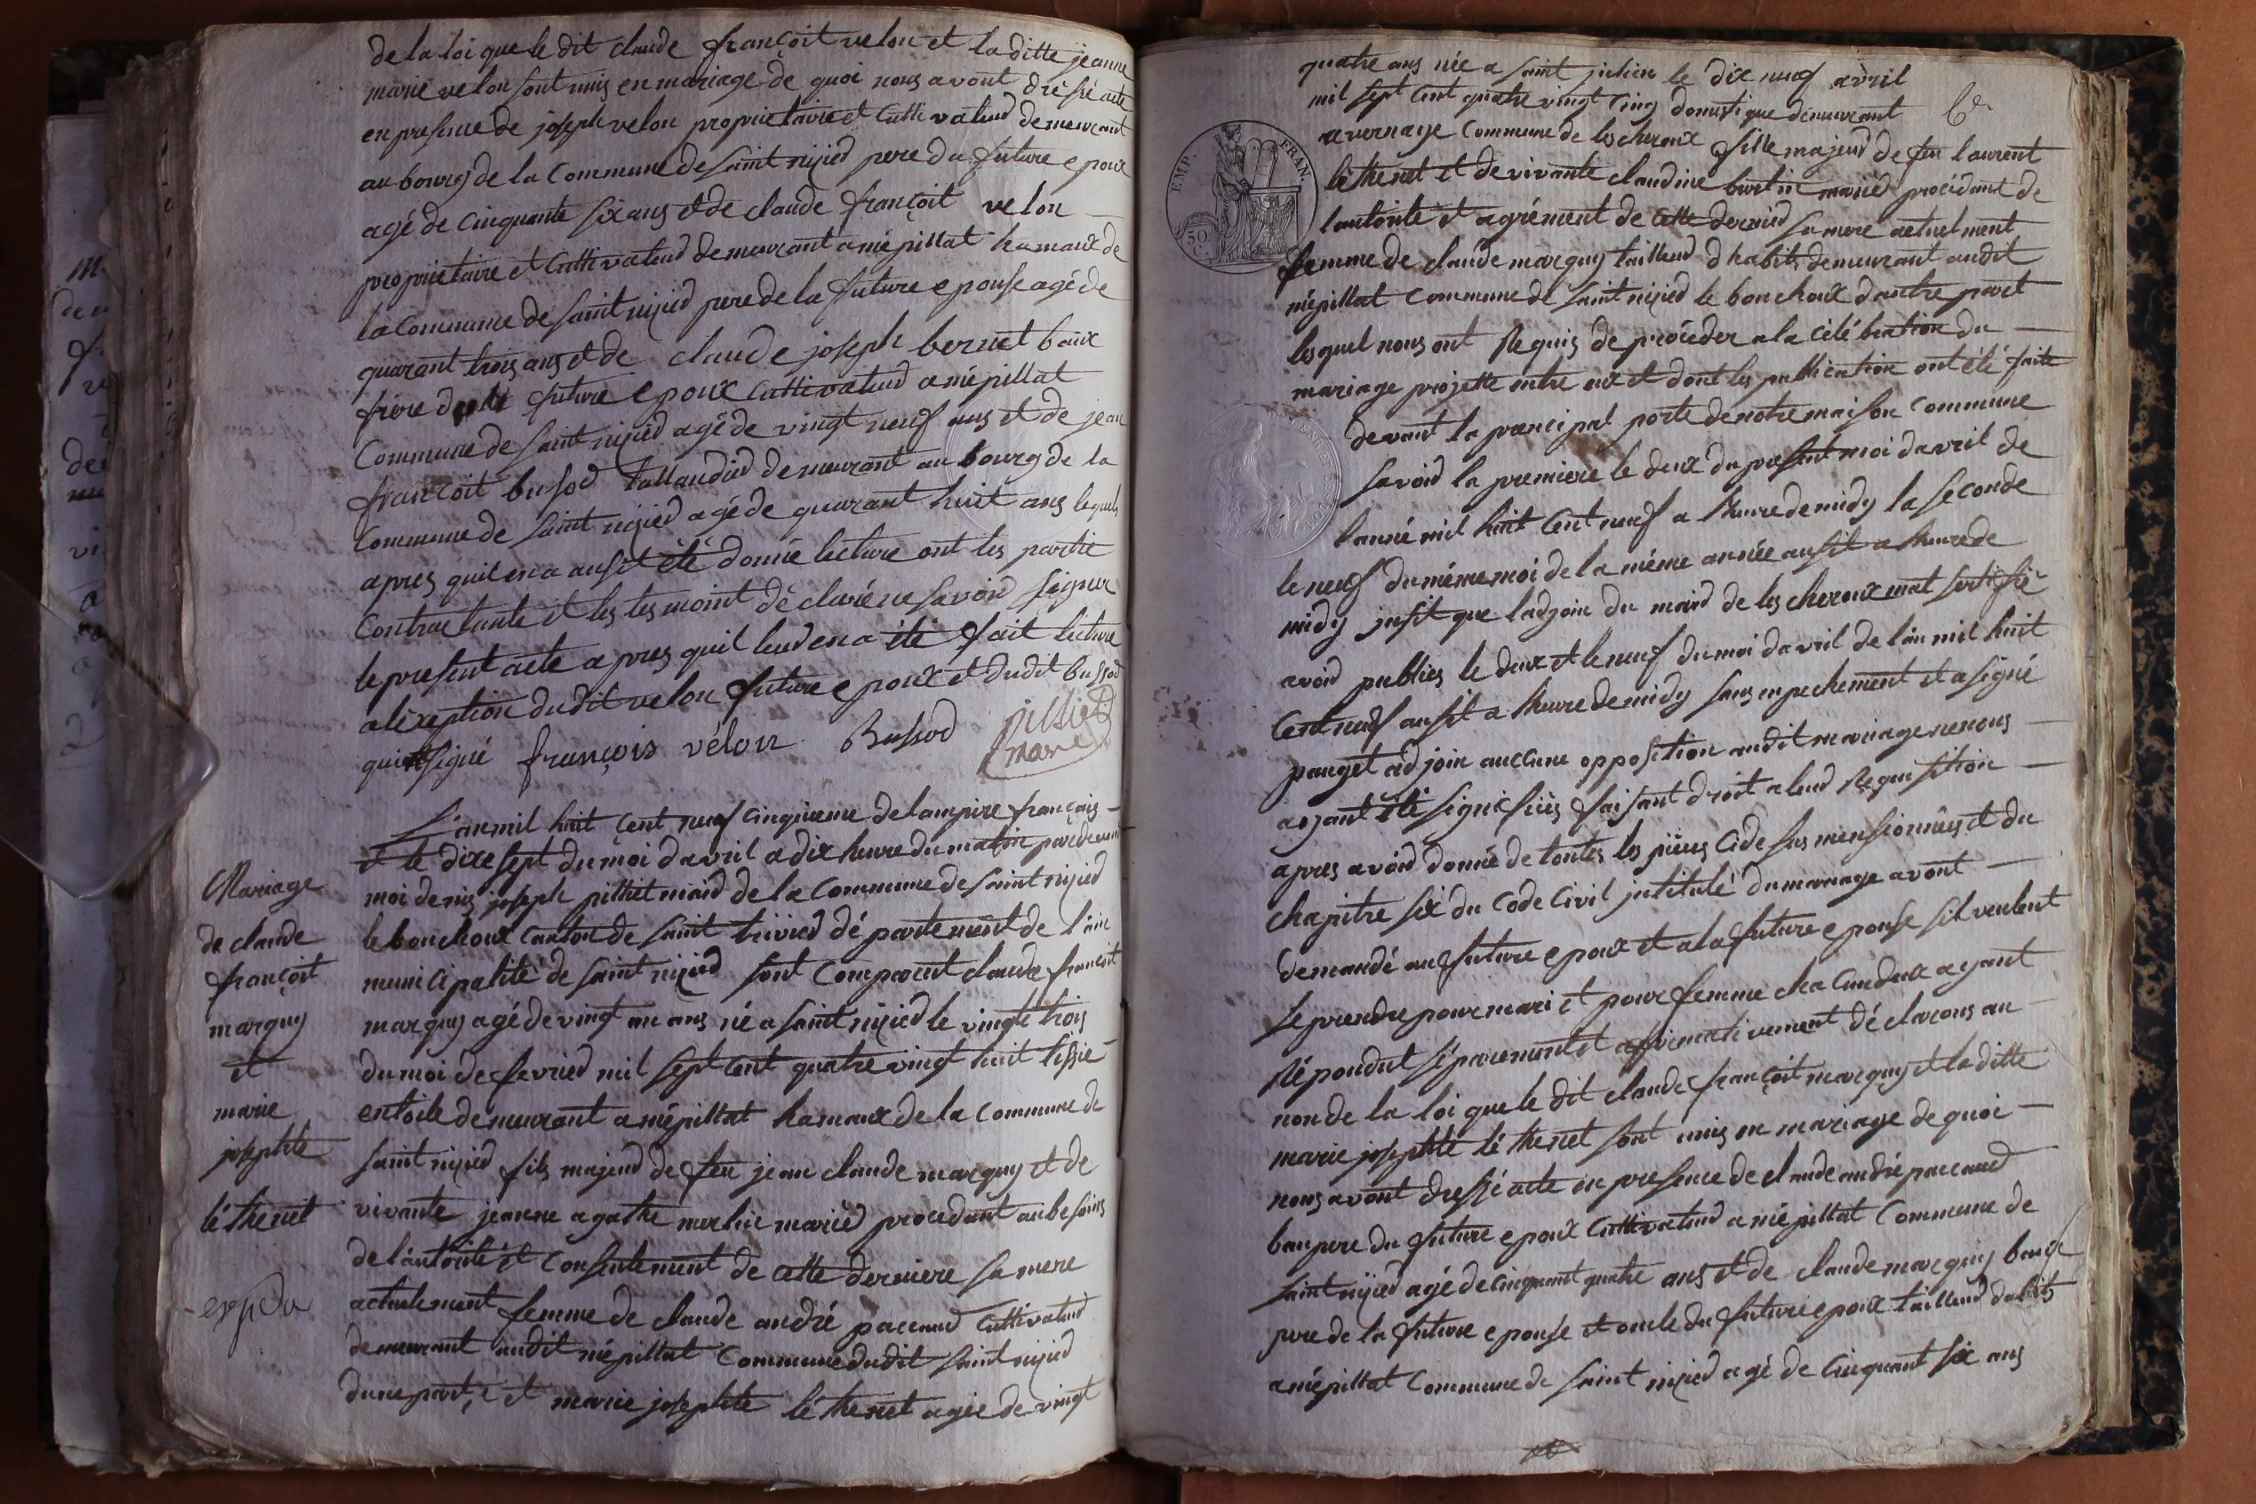 de la loi que le dit claude françoit velon et la ditte jeanne
marie velon sont unis en mariage de quoi nous avont dressé acte
en presence de joseph velon proprietaire et cultivateud demeurant
au bourg de la Commune de saint nizied pere du future epoux
agé de cinquante six ans et de claude françoit velon
proprietaire et cultivateud demeurant a mépillat hamaux de
la Commune de saint nizied pere de la future epouse agé de
quarant trois ans et de claude joseph bernet baux
frere du future epoux cultivateud a mépillat
Commune de saint nizied agé de vingt neuf ans et de jean
françoit bussod taillandied demeurant au bourg de la
Commune de saint nizied agé de quarant huit ans lequels
apres quil en a aussit été donnée lecture ont les partie
Contractante et les tesmoint déclaré ne savoir signer
le present acte apres quil leud en a été fait lecture
a lexeption du dit velon future epoux et dudit bussod
qui signé françois vélon Bussod pilliet
maire
L'an mil huit cent neuf cinquieme de lampire français
et le dixe sept du moi davril a dix heure du matin pardevant
moi denis joseph pilliet maird de la Commune de saint nizied
le bouchoux canton de saint trivied département de l'ain
municipalité de saint nizied sont comparut claude françoit
marguy agé de vingt un ans né a saint nizied le vingt trois
du moi de fevried mil sept cent quatre vingt huit tissie
entoile demeurant a mépillat hamaux de la commune de
saint nizied fils majeud de feu jean claude marguy et de
vivante jeanne agathe merlin mariéd procedant au besoins
de lautorité et consentement de cette derniere sa mere
actuelement femme de claude andré paccaud cultivateud
demeurant audit mépillat Commune dudit saint nizied
dune part, et marie josephte léthenet agée de vingt
Mariage
de claude
françoit
marguy
et
marie
josephte
léthenet
expdu
quatre ans née a saint julien le dix neuf avril
mil sept cent quatre vingt cinq domestique demeurant
a vernaye Commune de lescheroux fille majeud de feu laurent
léthenet et de vivante claudine burtin mariéd procédant de
lautorité et agrément de cette dernied sa mere actuelment
femme de claude marguy tailleud dhabits demeurant audit
mépillat Commune de saint nizied le bouchoux dautre part
lesquel nous ont Requis de procéder a la célébration du
mariage projetté entre eux et dont les publication ont été faite
devant la principal porte de notre maison Commune
savoid la premiere le deux du present moi davril de
lanné mil huit Cent neuf a lheure de midy la seconde
le neuf du méme moi de la méme année aussit a lheure de
midy jusit que ladjoin du maird de lescheroux mat sertifié
avoid publies le deux et le neuf du moi davril de lan mil huit
Cent neuf aussit a lheure de midy sans enpechement et a signé
pauget adjoin auccune opposition audit mariage ne nous
ayant été signifiiés faisant droit a leud Requisition
apres avoid donnée de toutes les piéces cidesus mensionnées et du
chapitre six du Code Civil jntitulé du mariage avont
demandé au future epoux et a la future epouse sil veulent
se prendre pour mari et pour femme chacundeux ayant
Répondut séparement et affirmativement déclarons au
non de la loi que le dit claude françoit marguy et la ditte
marie josephte léthenet sont unis en mariage de quoi
nous avont dressé acte en presence de claude andré paccaud
baupere du future epoux Cultivateud a mépillat Commune de
saint nizied agé de cinquant quatre ans et de claude marguy baux
pere de la future epouse et oncle du future epoux tailleud dabits
a mépillat Commune de saint nizied agé de Cinquant six ans
EMP. FRAN.
50 C.